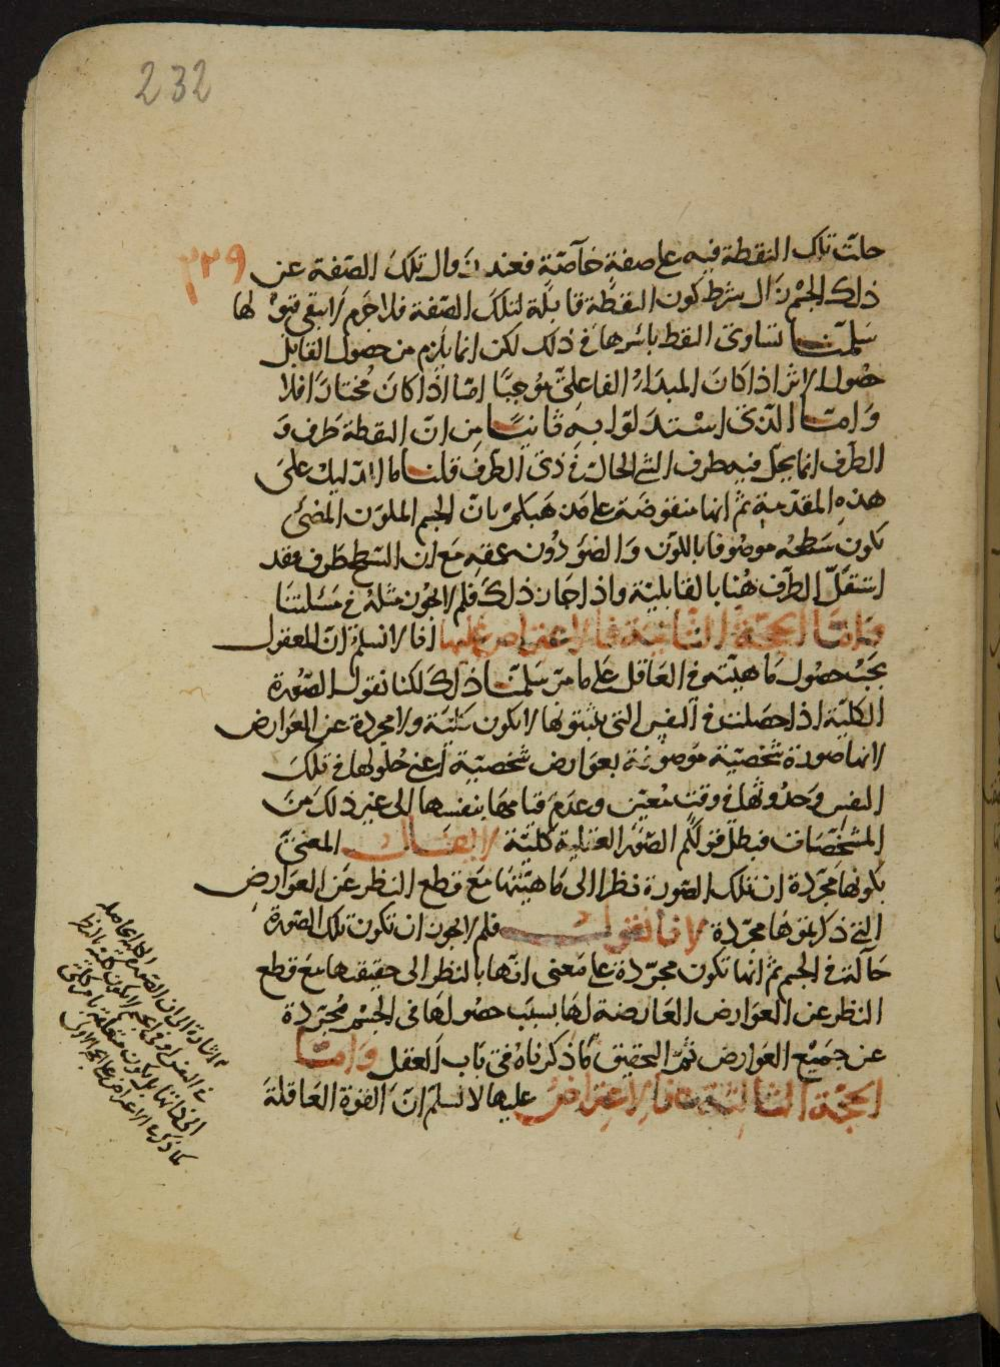 232
٢٣٩
حلت تلك النقطة فيه على صفة خاصة فعند زوال تلك الصفة عن
ذلك الجسم زال شرط كون النقطة قابلة لتلك الصفة فلا جرم لا تبقى لها
سلمنا تساوى النقط باسرها فى ذلك لكن انما يلزم من حصول القابل
حصول الاثر اذا كان المبداء الفاعلى موجبا اما اذا كان مختارا فلا
وامّا الذى استدلوا به ثانيا من ان النقطة طرف و
الطرف انما يحل فيه طرف الشئ الحال فى ذى الطرف قلنا ما الدليل على
هذه المقدمة ثم انها منقوضة على مذهبكم بان الجسم الملون المضئ
يكون سطحه موصوفا باللون والضوء دون عمقه مع ان السطح طرف فقد
استقل الطرف هنا بالقابلية واذا جاز ذلك فلم لا يجوز مثله فى مسئلتنا
وامّا الحجّة الثانية فالاعتراض عليها انا لا نسلم ان المعقول
يجب حصول ماهيته فى العاقل على ما مرّ سلمنا ذلك لكنا نقول الصّورة
الكليّة اذا حصلت فى النفس التى يثبتونها لا يكون كليّة ولا مجردة عن العوارض
لانها صورة شخصيّة موصوفة بعوارض شخصيّة اعنى حلولها فى تلك
النفس وحدوثها فى وقت معيّن وعدم قيامها بنفسها الى غير ذلك من
المشخّصات فبطل قولكم الصّور العقلية كليّة لا يقال المعنىّ
بكونها مجرّدة ان تلك الصّورة نظرا الى ماهيّتها مع قطع النظر عن العوارض
التى ذكرتموها مجرّدة لانا نقول فلم لا يجوز ان تكون تلك الصّورة
حآلة فى الجسم ثم انها تكون مجرّدة على معنى انّها بالنظر الى حقيقتها مع قطع
النظر عن العوارض العارضة لها بسبب حصولها فى الجسم مجرّدة
عن جميع العوارض ثمّ التحقيق ما ذكرناه فى باب العقل وامّا
الحجّة الثالثة فالاعتراض عليها لا نسلم انّ القوّة العاقلة